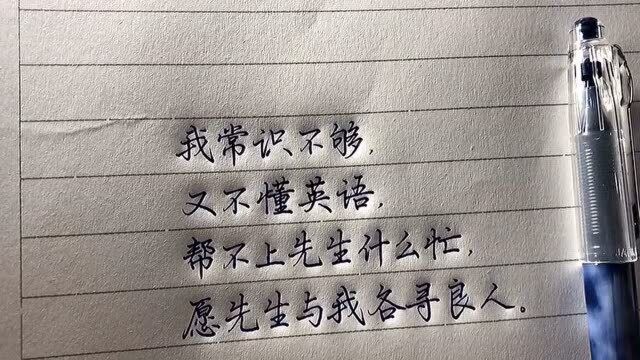 我常识不够,
又不懂英语,
帮不上先生什么忙,
愿先生与我各寻良人。